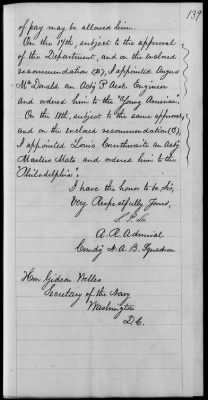 139
of pay may be allowed him.
On the 17th, subject to the approval
of the Department, and on the enclosed
recommendation (B), I appointed Angus
McDonald an Actg 3d Asst. Engineer
and ordered him to the "Young America".
On the 18th, subject to the same approval,
and on the enclosed recommendation (C),
I appointed Louis Cornthwaite an Actg
Masters Mate and ordered him to the
"Philadelphia".
I have the honor to be Sir,
Very Respectfully Yours,
S. P. Lee
A. R. Admiral
Comdg N. A. B. Squadron
Hon Gideon Welles
Secretary of the Navy
Washington
D.C.